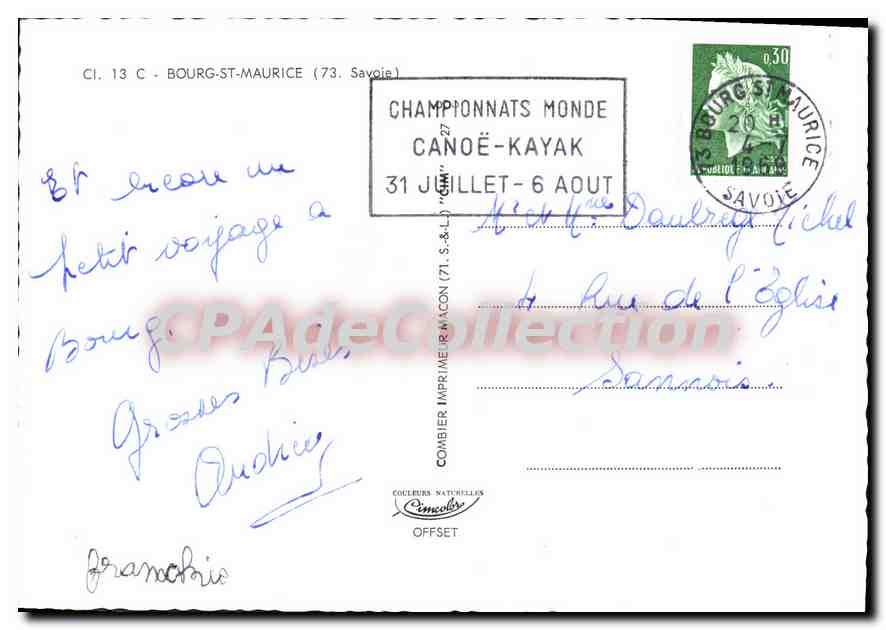 Cl. 13 C - BOURG-ST-MAURICE (73. Savoie)
CHAMPIONNATS MONDE
CANOË-KAYAK
31 JUILLET - 6 AOUT
0,30
73 BOURG-ST MAURICE
20 H
4 - 7
1969
SAVOIE
RÉPUBLIQUE FRANÇAISE
Et encore un
petit voyage a
Bourg.
Grosses Bises
COMBIER IMPRIMEUR MACON (71. S.-&-L.) "CIM" 27
Mr et Mme Daubrege Michel
4 Rue de l'Eglise
Sannois.
COULEURS NATURELLES
Cimcolor
OFFSET
CPAdeCollection